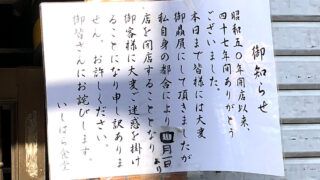 御知らせ
昭和五〇年開店以来、
四十七年間ありがとう
ございました。
本日まで皆様には大変
御贔屓にして頂きましたが
私自身の都合により 月 日より
店を閉店することとなり
御客様に大変ご迷惑を掛け
ることになり申し訳ありま
せん、お許しください。
御皆さんにお詫びします。
いしはら食堂